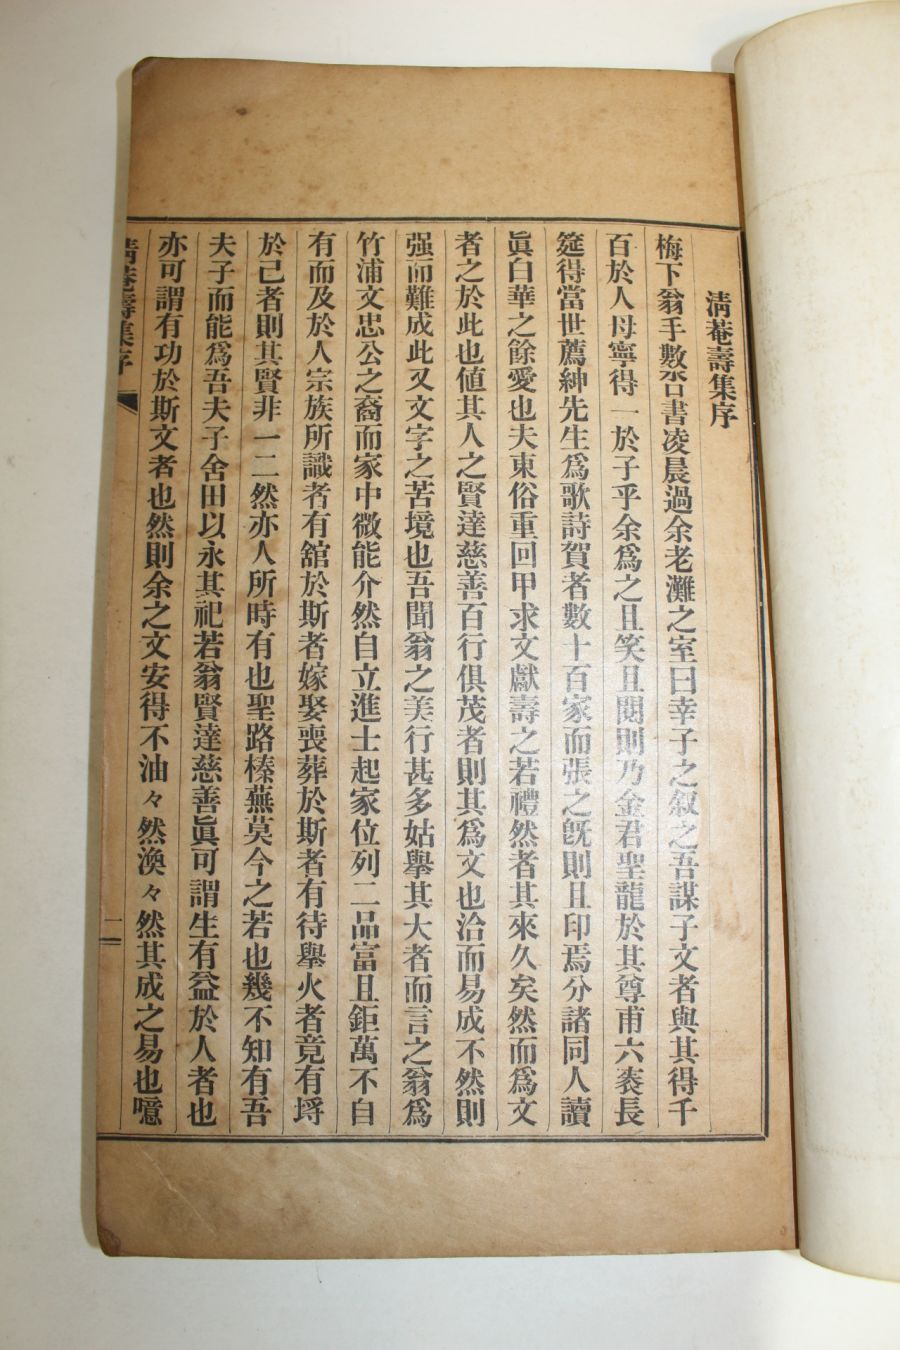 淸菴壽集序
梅下翁手數咫書凌晨過余老灘之室曰幸子之叙之吾謀子文者與其得千
百於人毋寧得一於子乎余爲之且笑且閱則乃金君聖龍於其尊甫六袠長
筵得當世薦紳先生爲歌詩賀者數十百家而張之旣則且印焉分諸同人讀
眞白華之餘愛也夫東俗重回甲求文獻壽之若禮然者其來久矣然而爲文
者之於此也値其人之賢達慈善百行俱茂者則其爲文也洽而易成不然則
强而難成此又文字之苦境也吾聞翁之美行甚多姑擧其大者而言之翁爲
竹浦文忠公之裔而家中微能介然自立進士起家位列二品富且鉅萬不自
有而及於人宗族所識者有舘於斯者嫁娶喪葬於斯者有待擧火者竟有埒
於己者則其賢非一二然亦人所時有也聖路榛蕪莫今之若也幾不知有吾
夫子而能爲吾夫子舍田以永其祀若翁賢達慈善眞可謂生有益於人者也
亦可謂有功於斯文者也然則余之文安得不油々然渙々然其成之易也噫
淸菴壽集序
一